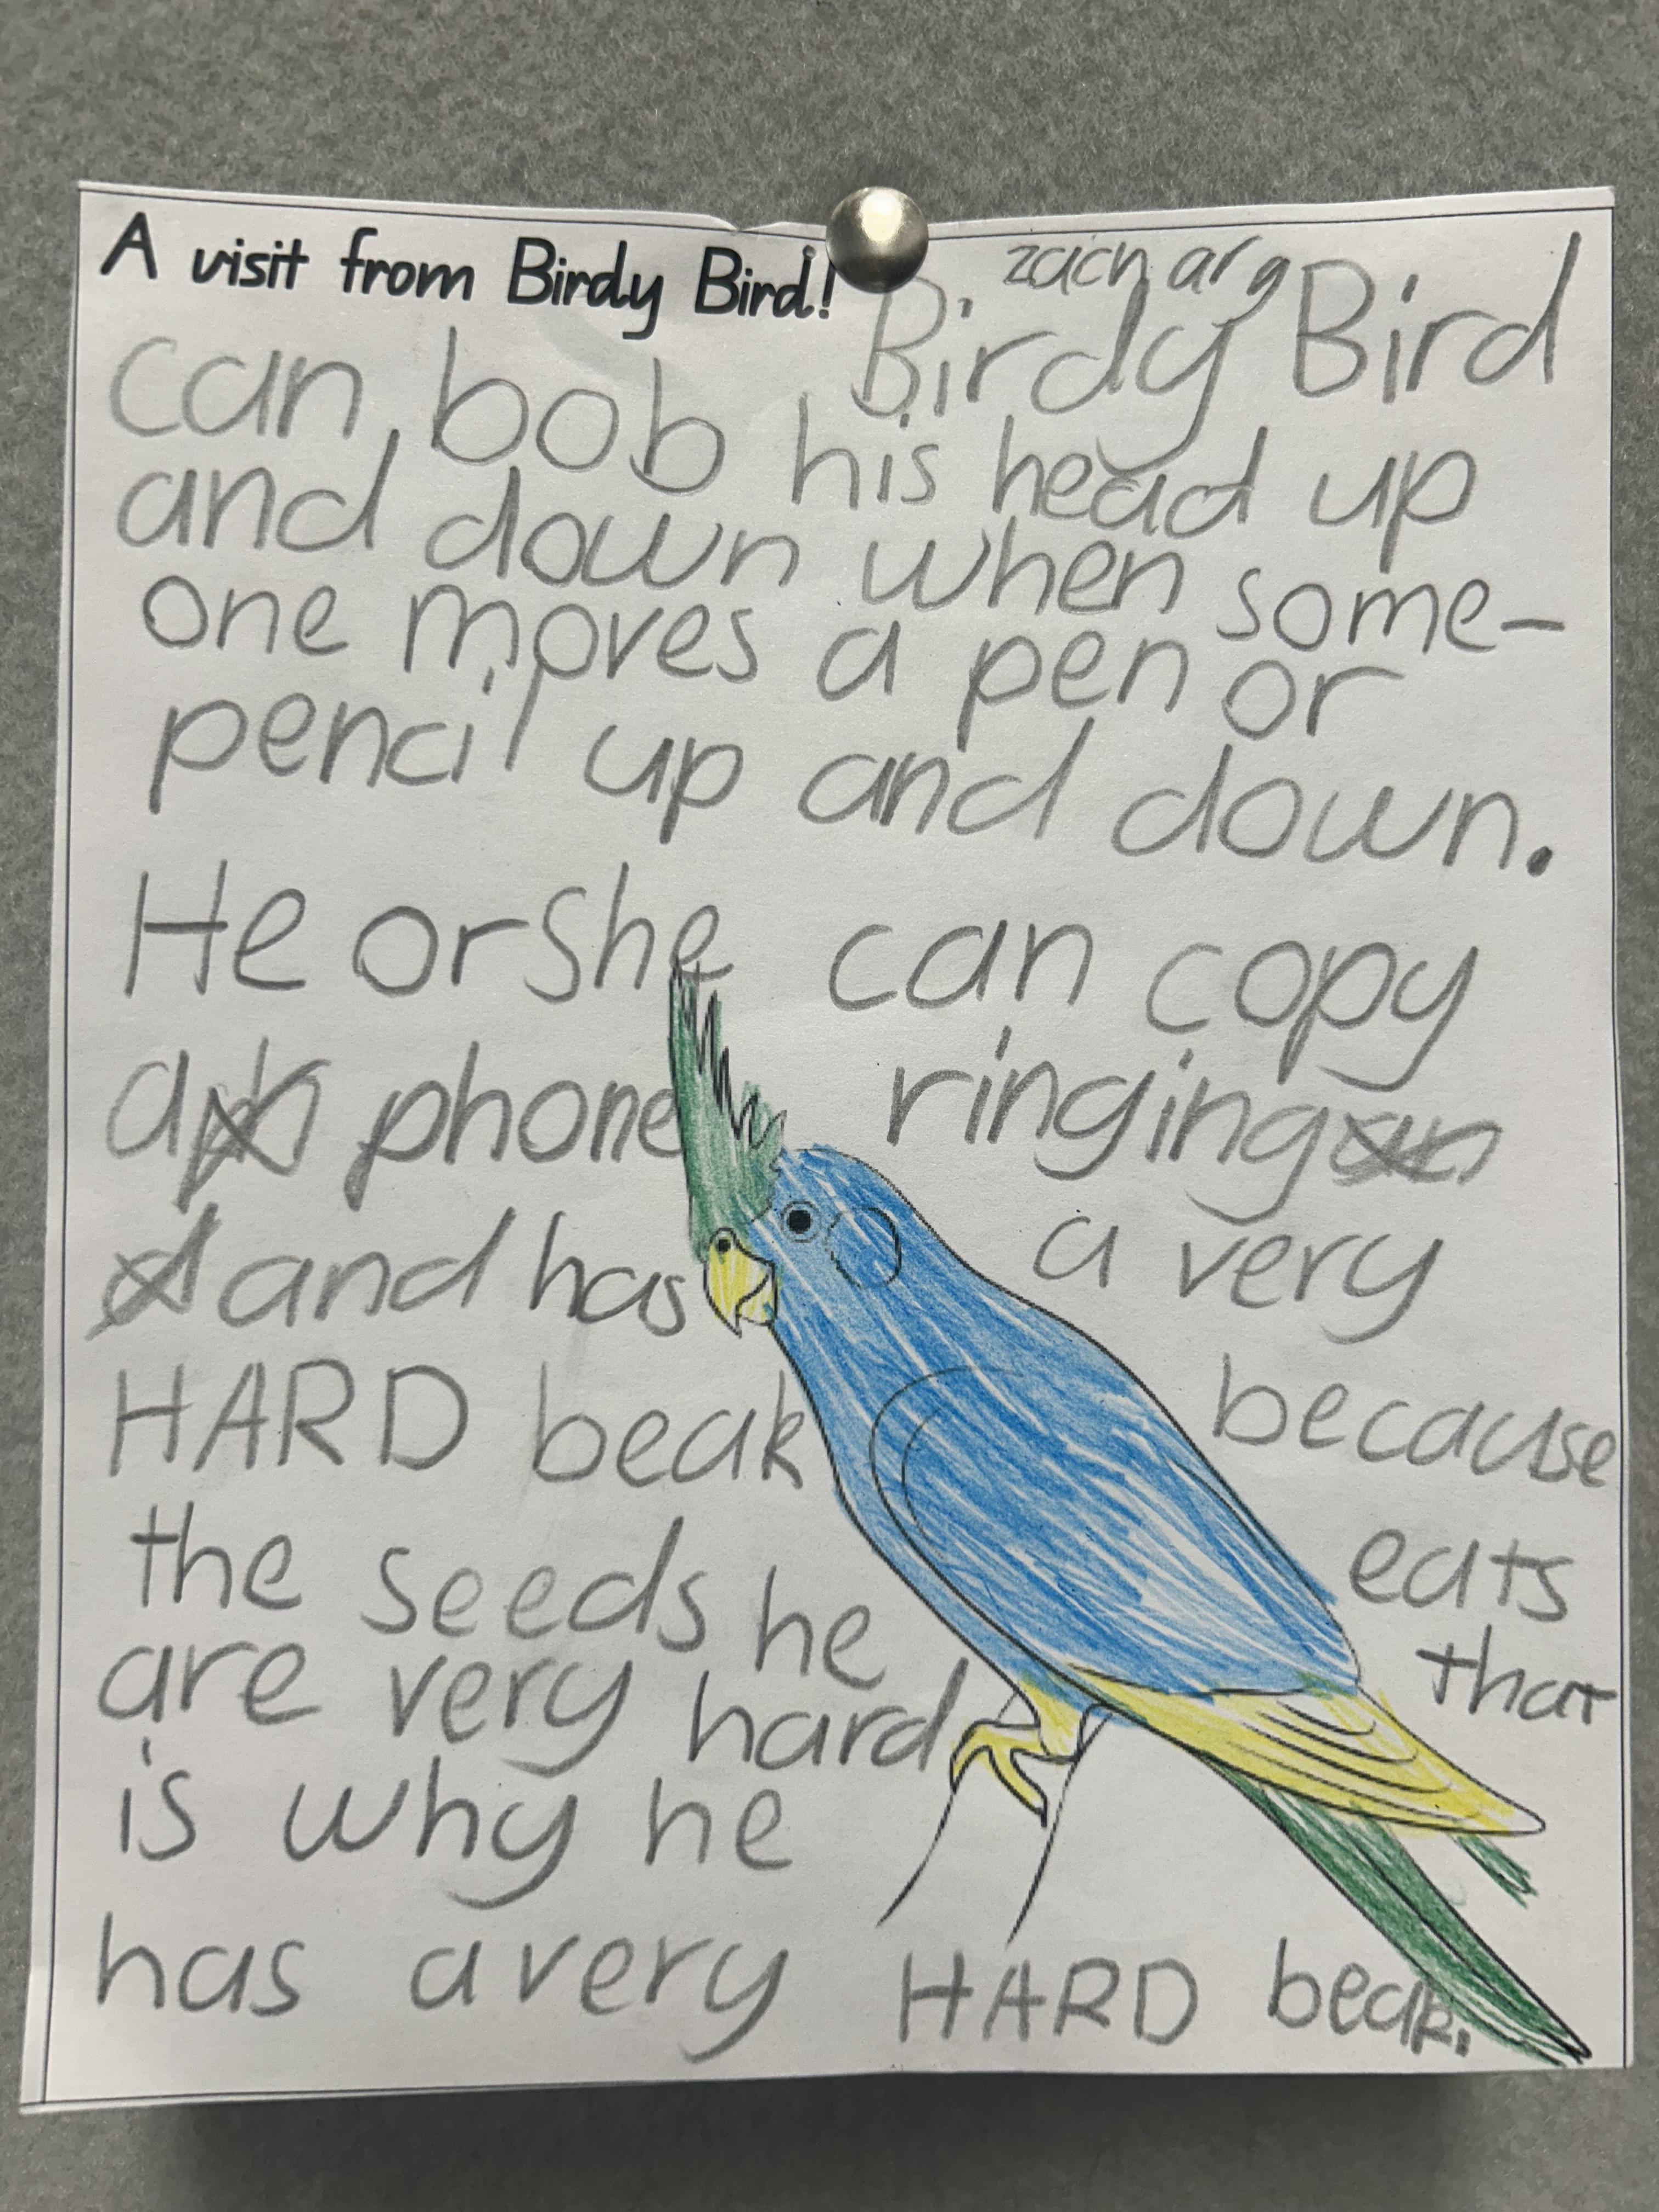 A visit from Birdy Bird!
zach arg
Birdy Bird
can bob his head up
and down when some-
one moves a pen or
pencil up and down.
He or she can copy
a phone ringing
and has a very
HARD beak because
the seeds he eats
are very hard that
is why he
has a very HARD beak.